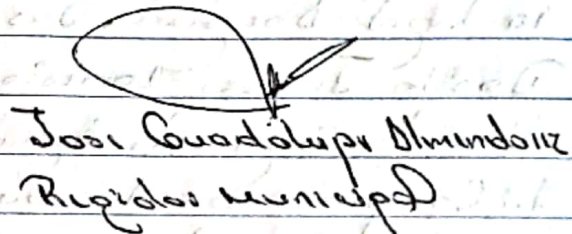 Jose Guadalupe Almendariz
Regidor Municipal